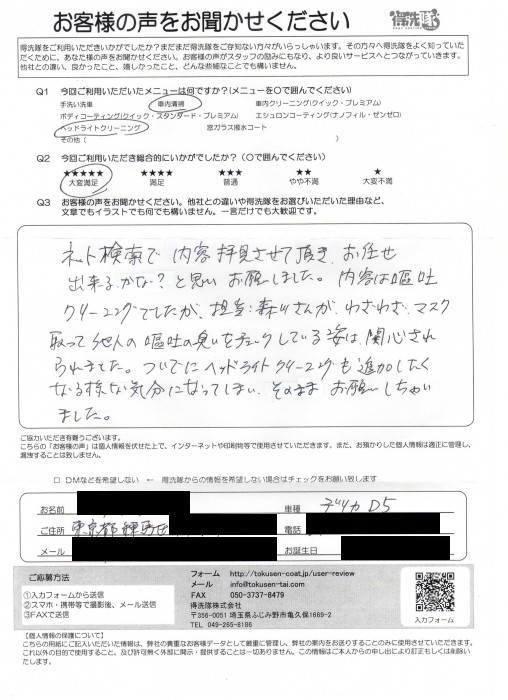 お客様の声をお聞かせください
得洗隊
得洗隊をご利用いただきいかがでしたか？まだまだ得洗隊をご存知ない方々がいらっしゃいます。その方々へ得洗隊をよく知っていた
だくために、あなた様の声をお聞かせください。お客様の声がスタッフの励みにもなり、より良いサービスへとつながっていきます。
他社との違い、良かったこと、嬉しかったこと、どんな些細なことでも構いません。
Q1 今回ご利用いただいたメニューは何ですか？(メニューを○で囲んでください)
手洗い洗車 車内清掃 車内クリーニング(クイック・プレミアム)
ボディコーティング(クイック・スタンダード・プレミアム) エシュロンコーティング(ナノフィル・ゼンゼロ)
ヘッドライトクリーニング 窓ガラス撥水コート
その他（ ）
Q2 今回ご利用いただき総合的にいかがでしたか？（○で囲んでください）
★★★★★ ★★★★ ★★★ ★★ ★
大変満足 満足 普通 やや不満 大変不満
Q3 お客様の声をお聞かせください。他社との違いや得洗隊をお選びいただいた理由など、
文章でもイラストでも何でも構いません。一言だけでも大歓迎です。
ネット検索で 内容 拝見させて頂き、お任せ
出来るかな？と思い お願いしました。内容は嘔吐
クリーニングでしたが、担当:森川さんが、わざわざ、マスク
取って他人の嘔吐の臭いをチェックしている姿は、関心され
られました。ついでにヘッドライトクリーニングも追加したく
なる様な気分になってしまい、そのまま お願いしちゃい
ました。
ご協力いただき有難うございます。
こちらの「お客様の声」は個人情報を伏せた上で、インターネットや印刷物等で使用させていただきます。また、お預かりした個人情報は適正に管理し、
漏洩することは致しません。
□ DMなどを希望しない ← 得洗隊からの情報を希望しない場合はチェックをお願い致します
お名前 車種 デリカ D5
ご住所 東京都練馬区 電話
メール お誕生日
ご応募方法
①入力フォームから送信
②スマホ・携帯等で撮影後、メール送信
③FAXで送信
フォーム http://tokusen-coat.jp/user-review
メール info@tokusen-tai.com
FAX 050-3737-8479
得洗隊株式会社
〒356-0051 埼玉県ふじみ野市亀久保1669-2
TEL 049-265-8186
入力フォーム
【個人情報の保護について】
こちらの用紙にご記入いただいた情報は、弊社の貴重なお客様データとして厳重に管理し、弊社の案内をお送りすることのみに使用させていただきます。
これ以外の目的で使用すること、及び許可無く外部に開示・提供することは一切ありません。この情報はご本人からの申し出により訂正もしくは削除い
たします。